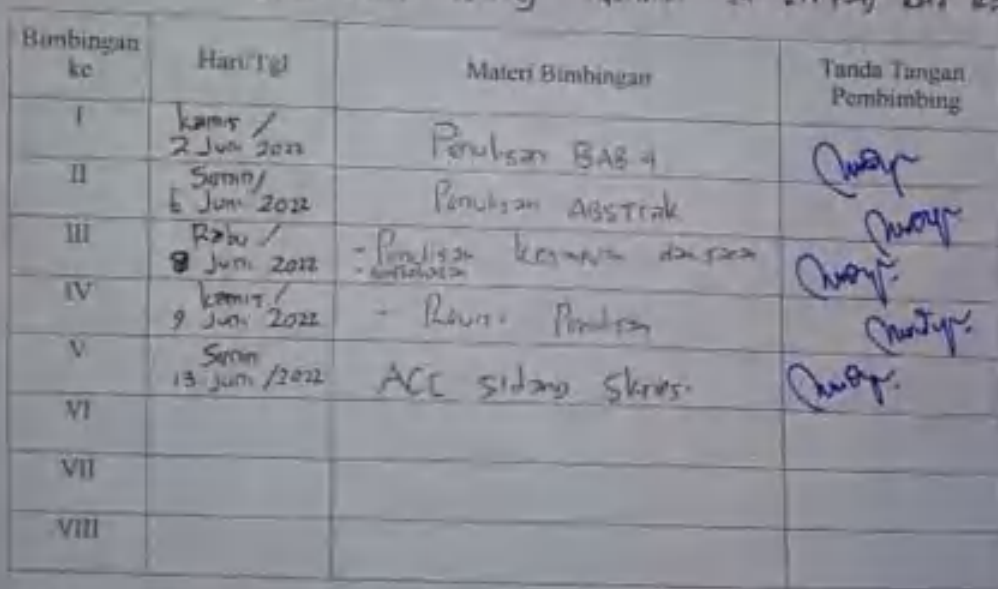 Bimbingan ke
Hari/Tgl
Materi Bimbingan
Tanda Tangan Pembimbing
I
kamis /
2 Juni 2022
Penulisan BAB 4
II
Senin/
6 Juni 2022
Penulisan ABSTrak
III
Rabu /
8 Juni 2022
- Penulisan dan saran
IV
kamis /
9 Juni 2022
- Revisi Penulisan
V
Senin
13 Juni /2022
ACC sidang Skripsi
VI
VII
VIII